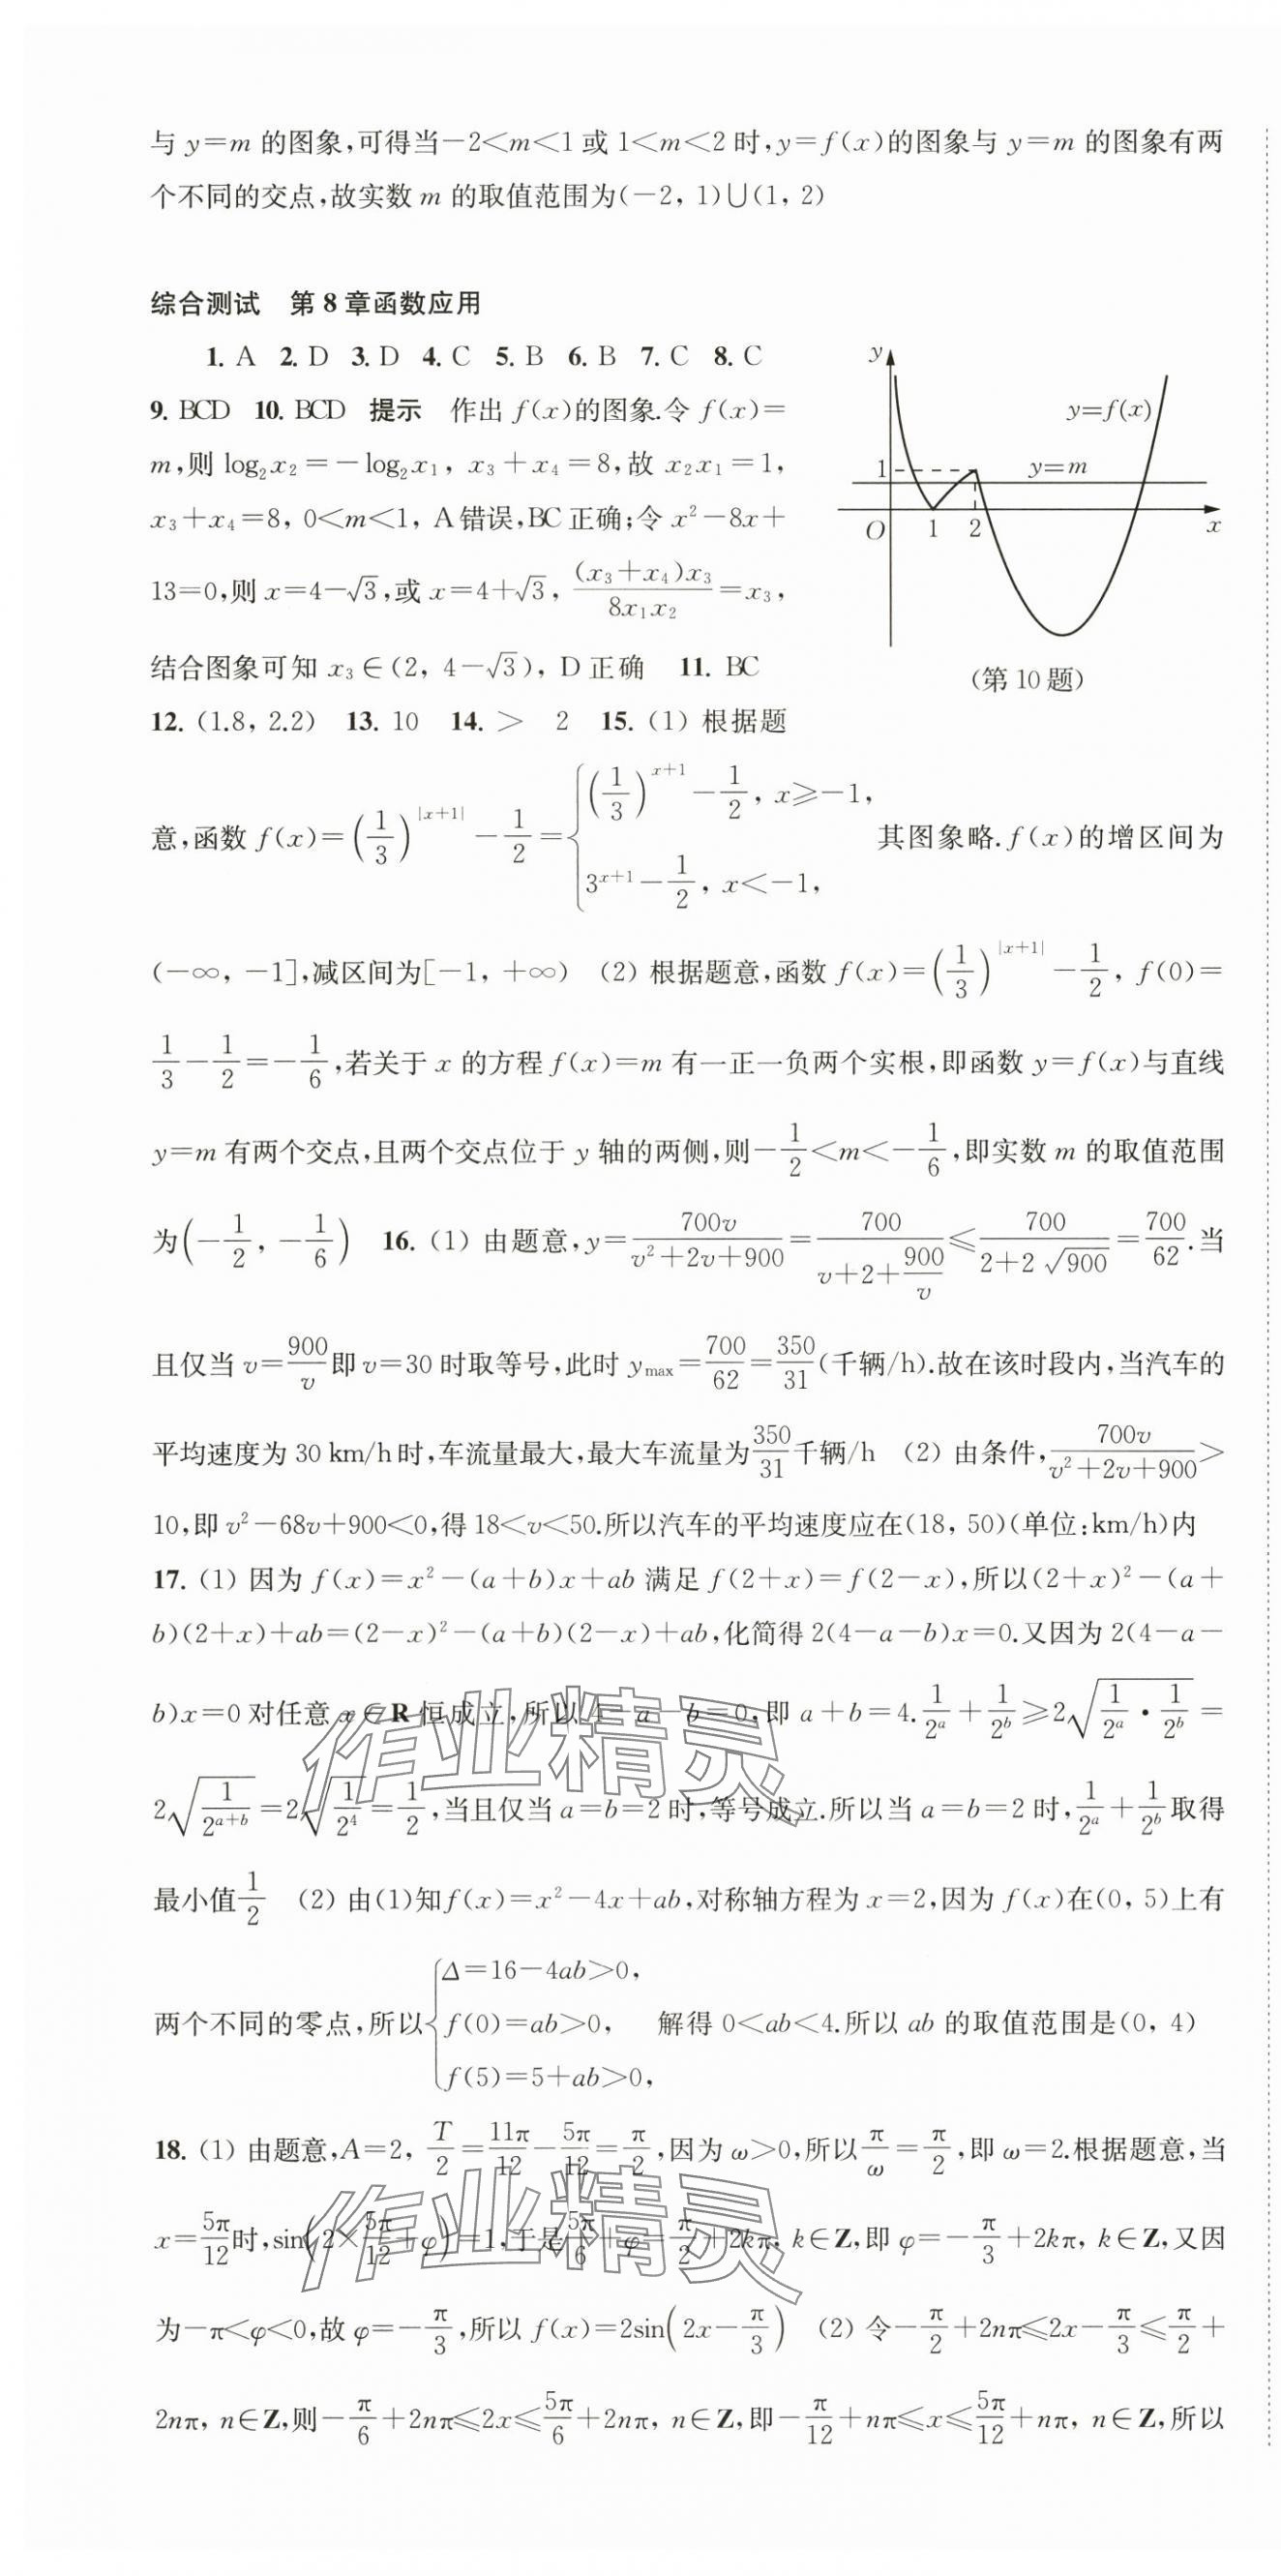 与 y=m 的图象,可得当-2<m<1 或 1<m<2 时,y=f(x)的图象与 y=m 的图象有两
个不同的交点,故实数 m 的取值范围为(-2, 1)∪(1, 2)
综合测试 第 8 章函数应用
1. A 2. D 3. D 4. C 5. B 6. B 7. C 8. C
9. BCD 10. BCD 提示 作出 f(x)的图象.令 f(x)=
m,则 log₂x₂=-log₂x₁, x₃+x₄=8,故 x₂x₁=1,
x₃+x₄=8, 0<m<1, A 错误,BC 正确;令 x²-8x+
13=0,则 x=4-√3,或 x=4+√3, (x₃+x₄)x₃/8x₁x₂=x₃,
结合图象可知 x₃∈(2, 4-√3), D 正确 11. BC
y
y=f(x)
1
y=m
O 1 2 x
(第 10 题)
12. (1.8, 2.2) 13. 10 14. > 2 15. (1) 根据题
意,函数 f(x)=(1/3)^|x+1| - 1/2 = { (1/3)^(x+1) - 1/2, x≥-1, 3^(x+1) - 1/2, x<-1, 其图象略.f(x)的增区间为
(-∞, -1],减区间为[-1, +∞) (2) 根据题意,函数 f(x)=(1/3)^|x+1| - 1/2, f(0)=
1/3-1/2=-1/6,若关于 x 的方程 f(x)=m 有一正一负两个实根,即函数 y=f(x)与直线
y=m 有两个交点,且两个交点位于 y 轴的两侧,则-1/2<m<-1/6,即实数 m 的取值范围
为(-1/2, -1/6) 16. (1) 由题意,y=700v/(v²+2v+900)=700/(v+2+900/v)≤700/(2+2√900)=700/62.当
且仅当 v=900/v即 v=30 时取等号,此时 ymax=700/62=350/31(千辆/h).故在该时段内,当汽车的
平均速度为 30 km/h 时,车流量最大,最大车流量为350/31千辆/h (2) 由条件,700v/(v²+2v+900)>
10,即 v²-68v+900<0,得 18<v<50.所以汽车的平均速度应在(18, 50)(单位:km/h)内
17. (1) 因为 f(x)=x²-(a+b)x+ab 满足 f(2+x)=f(2-x),所以(2+x)²-(a+
b)(2+x)+ab=(2-x)²-(a+b)(2-x)+ab,化简得 2(4-a-b)x=0.又因为 2(4-a-
b)x=0 对任意 x∈R 恒成立,所以 4-a-b=0,即 a+b=4.1/2^a+1/2^b≥2√(1/2^a·1/2^b)=
2√(1/2^(a+b))=2√(1/2⁴)=1/2,当且仅当 a=b=2 时,等号成立.所以当 a=b=2 时,1/2^a+1/2^b取得
最小值1/2 (2) 由(1)知 f(x)=x²-4x+ab,对称轴方程为 x=2,因为 f(x)在(0, 5)上有
两个不同的零点,所以{ Δ=16-4ab>0, f(0)=ab>0, f(5)=5+ab>0, 解得 0<ab<4.所以 ab 的取值范围是(0, 4)
18. (1) 由题意,A=2, T/2=11π/12-5π/12=π/2,因为 ω>0,所以π/ω=π/2,即 ω=2.根据题意,当
x=5π/12时,sin(2×5π/12+φ)=1,于是5π/6+φ=π/2+2kπ, k∈Z,即 φ=-π/3+2kπ, k∈Z,又因
为-π<φ<0,故 φ=-π/3,所以 f(x)=2sin(2x-π/3) (2) 令-π/2+2nπ≤2x-π/3≤π/2+
2nπ, n∈Z,则-π/6+2nπ≤2x≤5π/6+2nπ, n∈Z,即-π/12+nπ≤x≤5π/12+nπ, n∈Z,所以
作业精灵
作业精灵